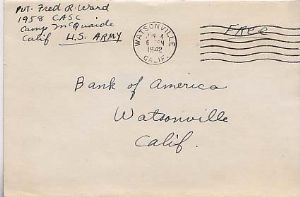 Pvt. Fred R. Ward
1958 CASC
Camp McQuaide
Calif U.S. ARMY
WATSONVILLE
1942
CALIF.
Free
Bank of America
Watsonville
Calif.